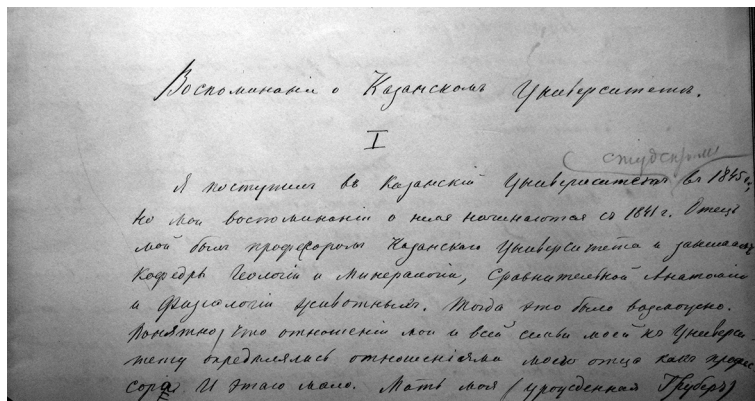 Воспоминанія о Казанскомъ Университетѣ.
I
студентомъ
Я поступилъ въ Казанскій Университетъ въ 1845 г.,
но мои воспоминанія о немъ начинаются съ 1841 г. Отецъ
мой былъ професоромъ Казанскаго Университета и занималъ
кафедры Геологіи и Минералогіи, Сравнительной Анатоміи
и Физіологіи животныхъ. Тогда это было возможно.
Понятно, что отношенія мои и всей семьи моей къ Универси-
тету опредѣлялись отношеніями моего отца какъ профес-
сора. И этого мало. Мать моя (урожденная Груберъ)